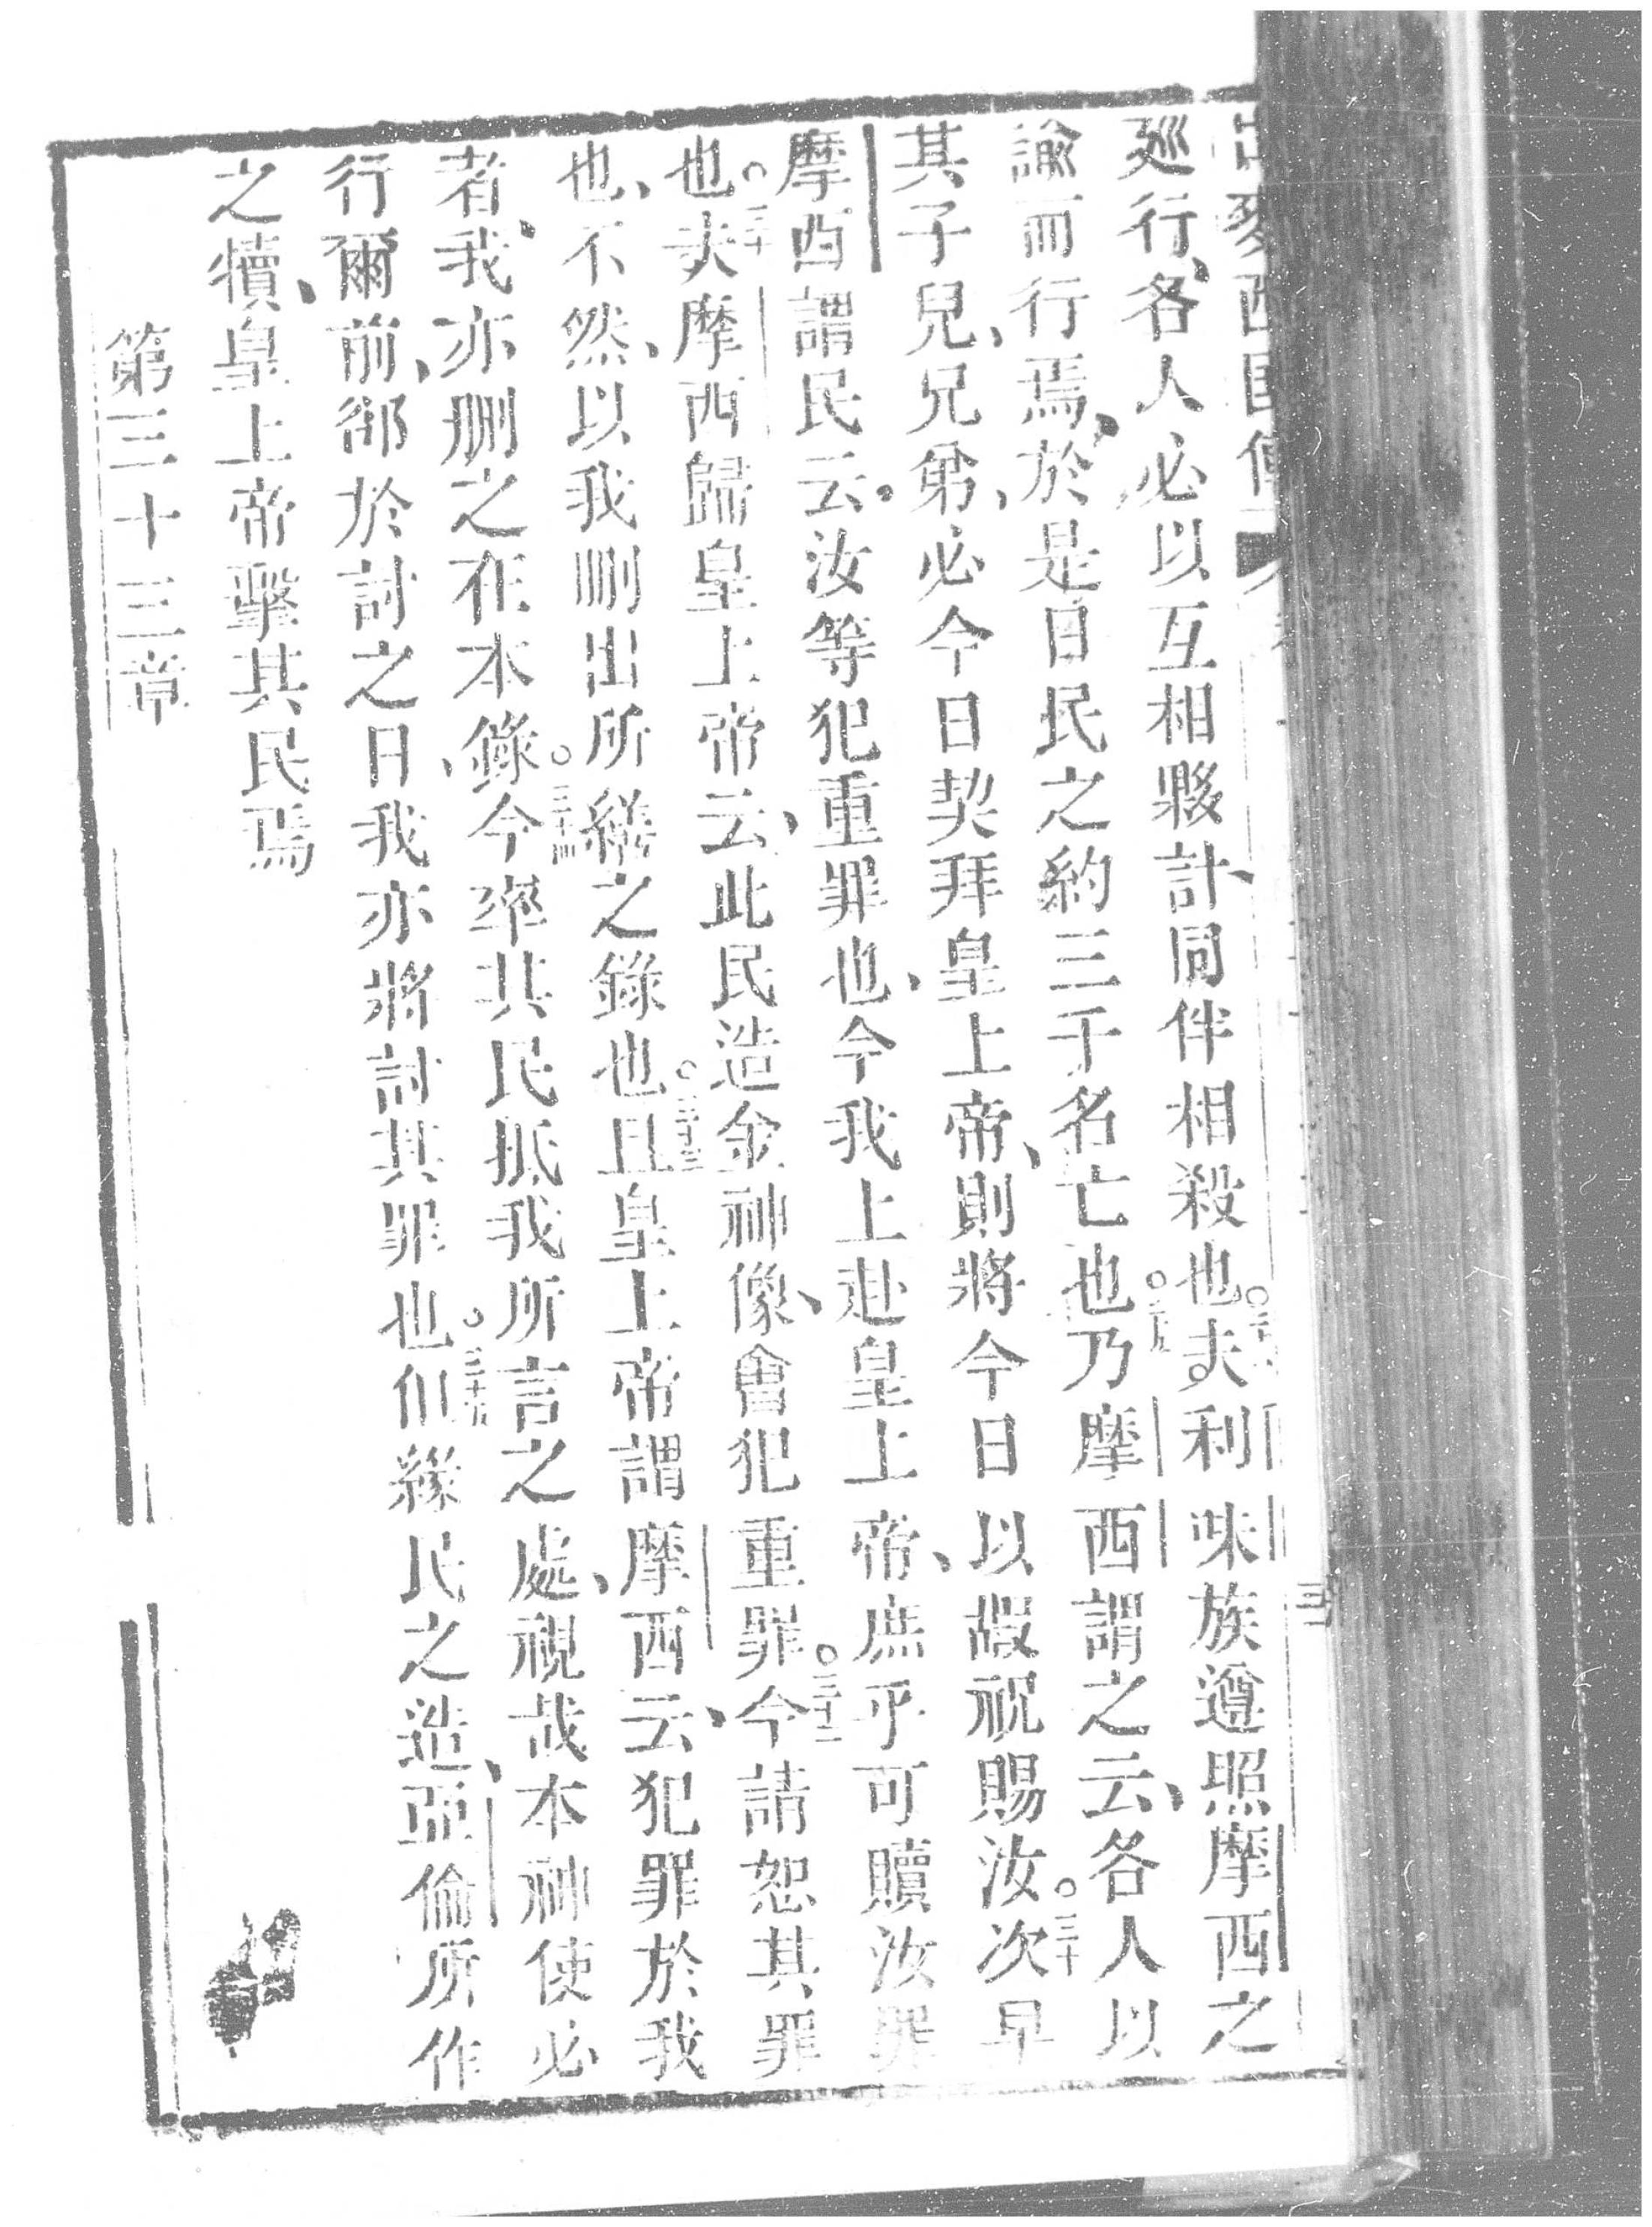 廵行、各人必以互相夥計、同伴相殺也。夫利味族遵照摩西之
諭而行焉、於是日民之約三千名亡也。乃摩西謂之云、各人以
其子兒、兄弟、必今日契拜皇上帝、則將今日以嘏祝賜汝。三十次早
摩西謂民云。汝等犯重罪也、今我上赴皇上帝、庶乎可贖汝罪
也。夫摩西歸皇上帝云、此民造金神像、曾犯重罪。今請恕其罪
也、不然、以我刪出所繕之錄也。且皇上帝謂摩西云、犯罪於我
者、我亦刪之在本錄。今率其民抵我所言之處、視哉本神使必
行爾前、卻於討之日、我亦將討其罪也。但緣民之造、亞倫所作
之犢、皇上帝擊其民焉
第三十三章